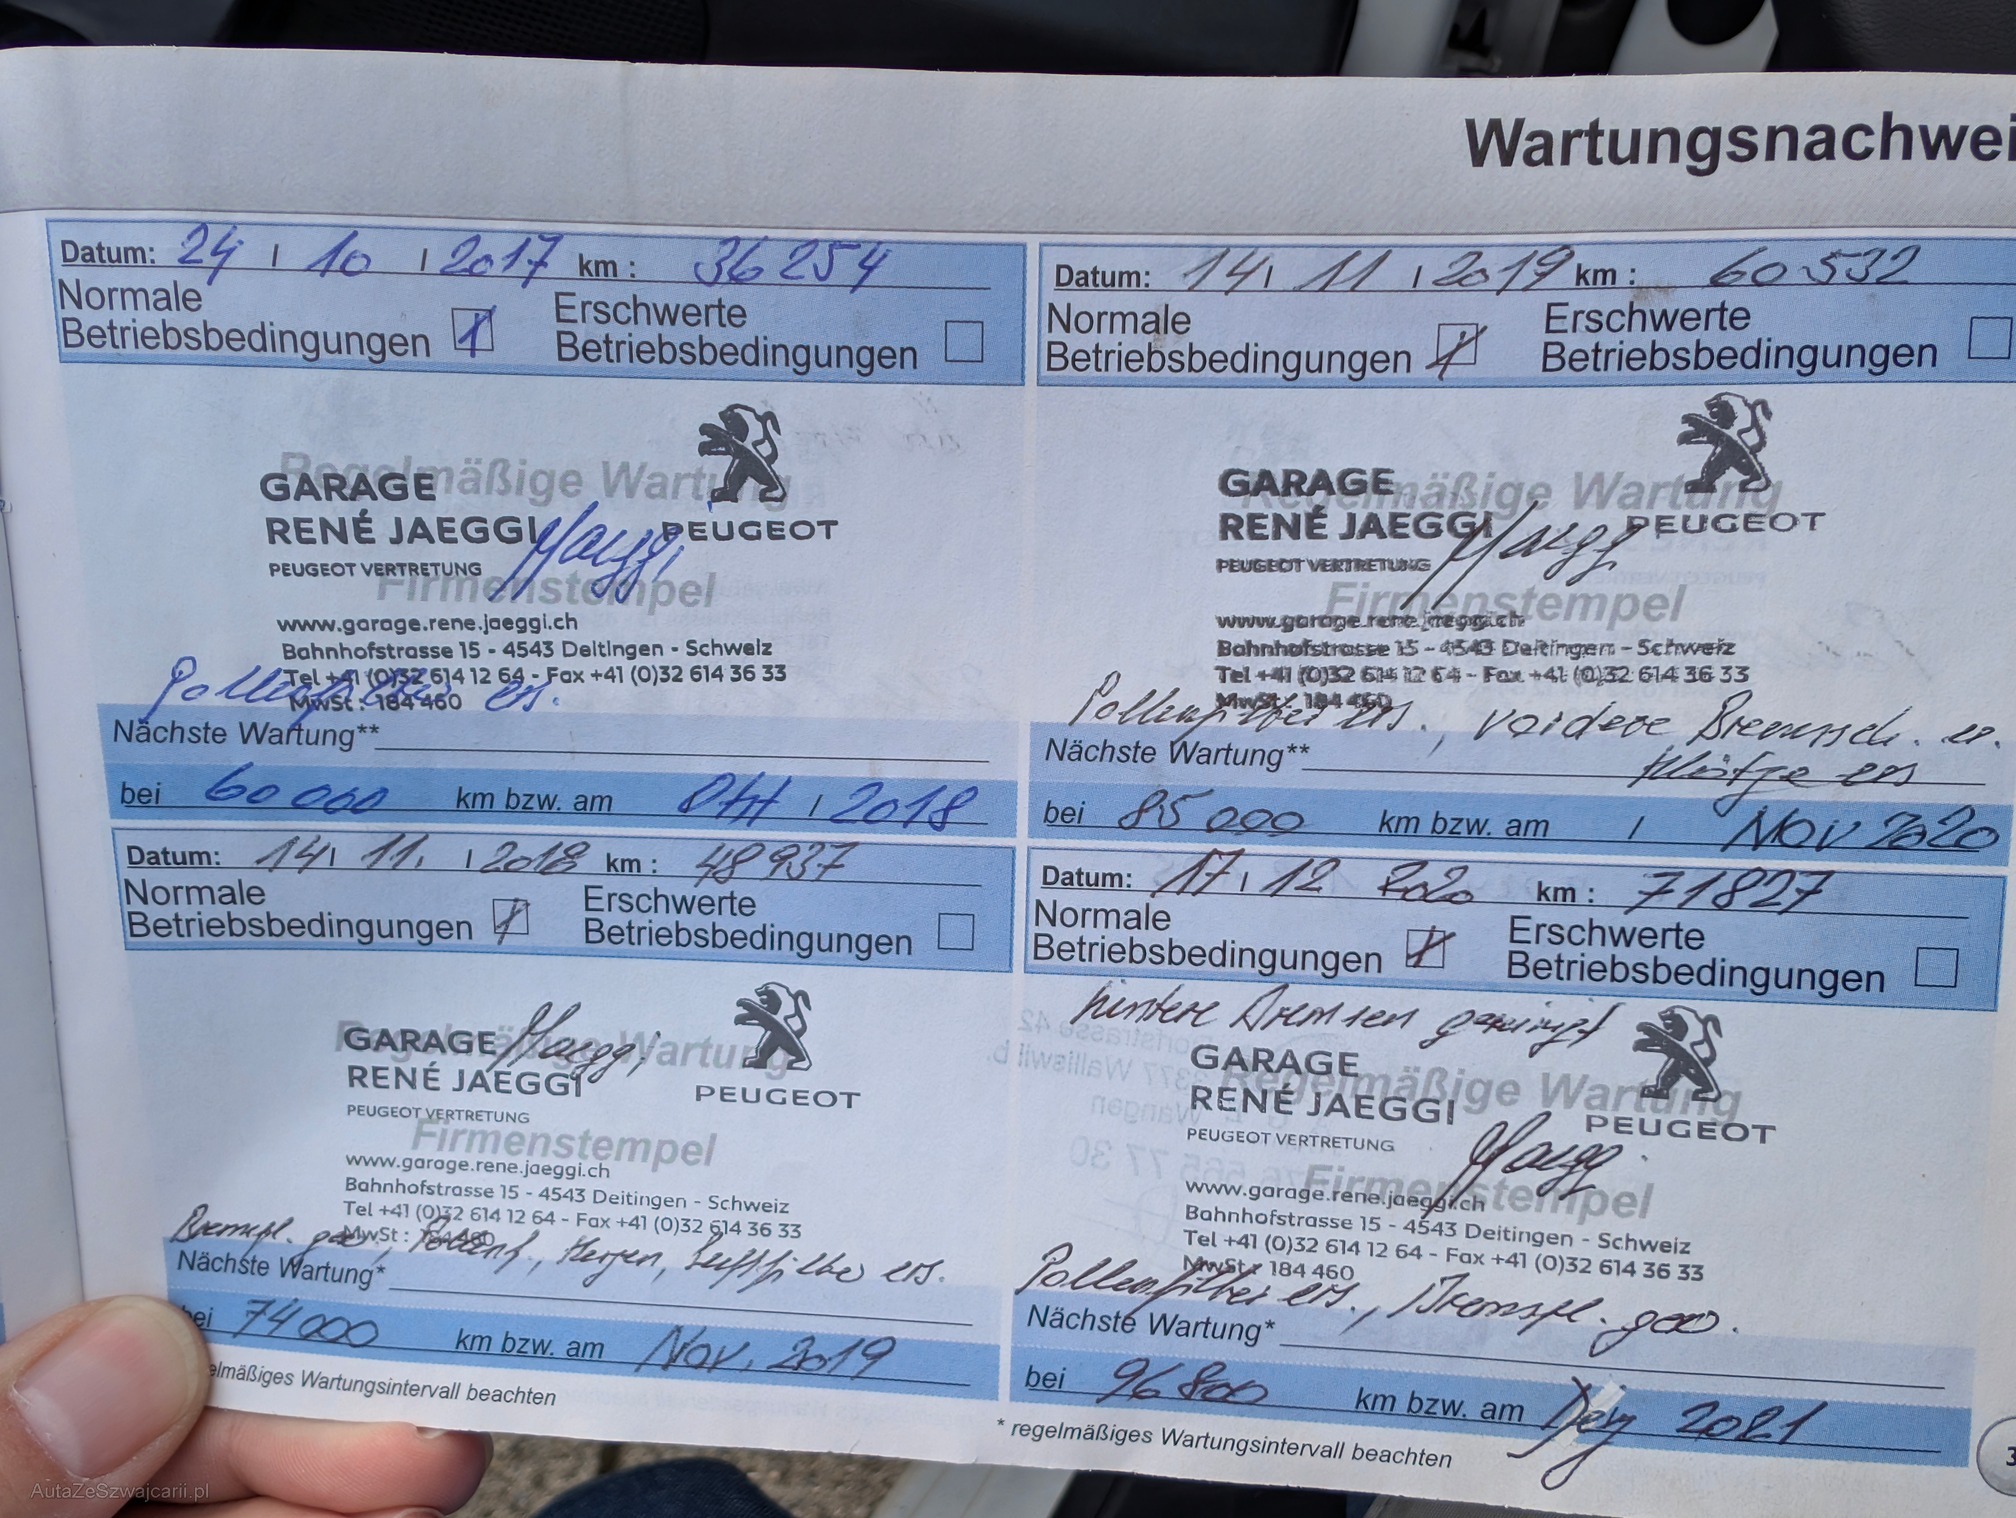 Wartungsnachwei
Datum: 24 / 10 / 2017 km : 36 254
Normale
Betriebsbedingungen
Erschwerte
Betriebsbedingungen
Regelmäßige Wartung
GARAGE
RENÉ JAEGGI
PEUGEOT
PEUGEOT VERTRETUNG
Firmenstempel
www.garage.rene.jaeggi.ch
Bahnhofstrasse 15 - 4543 Deitingen - Schweiz
Tel +41 (0)32 614 12 64 - Fax +41 (0)32 614 36 33
MwSt : 184 460
Pollenfilter ers.
Nächste Wartung**
bei 60 000 km bzw. am Okt / 2018
Datum: 14 / 11. / 2018 km : 48 937
Normale
Betriebsbedingungen
Erschwerte
Betriebsbedingungen
Regelmäßige Wartung
GARAGE
RENÉ JAEGGI
PEUGEOT
PEUGEOT VERTRETUNG
Firmenstempel
www.garage.rene.jaeggi.ch
Bahnhofstrasse 15 - 4543 Deitingen - Schweiz
Tel +41 (0)32 614 12 64 - Fax +41 (0)32 614 36 33
MwSt : 184 460
Bremsfl. gew., Pollenf., Kerzen, Luftfilter ers.
Nächste Wartung*
bei 74 000 km bzw. am Nov. 2019
elmäßiges Wartungsintervall beachten
Datum: 14 / 11 / 2019 km : 60 532
Normale
Betriebsbedingungen
Erschwerte
Betriebsbedingungen
Regelmäßige Wartung
GARAGE
RENÉ JAEGGI
PEUGEOT
PEUGEOT VERTRETUNG
Firmenstempel
www.garage.rene.jaeggi.ch
Bahnhofstrasse 15 - 4543 Deitingen - Schweiz
Tel +41 (0)32 614 12 64 - Fax +41 (0)32 614 36 33
MwSt : 184 460
Pollenfilter ers., vordere Bremssch. er.
Klötze ers
Nächste Wartung**
bei 85 000 km bzw. am / NOV 2020
Datum: 17 / 12 2020 km : 71827
Normale
Betriebsbedingungen
Erschwerte
Betriebsbedingungen
hintere Bremsen gereinigt
Regelmäßige Wartung
GARAGE
RENÉ JAEGGI
PEUGEOT
PEUGEOT VERTRETUNG
Firmenstempel
www.garage.rene.jaeggi.ch
Bahnhofstrasse 15 - 4543 Deitingen - Schweiz
Tel +41 (0)32 614 12 64 - Fax +41 (0)32 614 36 33
MwSt : 184 460
Pollenfilter ers., Bremsfl. gew.
Nächste Wartung*
bei 96 800 km bzw. am Dez 2021
* regelmäßiges Wartungsintervall beachten
3
AutaZeSzwajcarii.pl